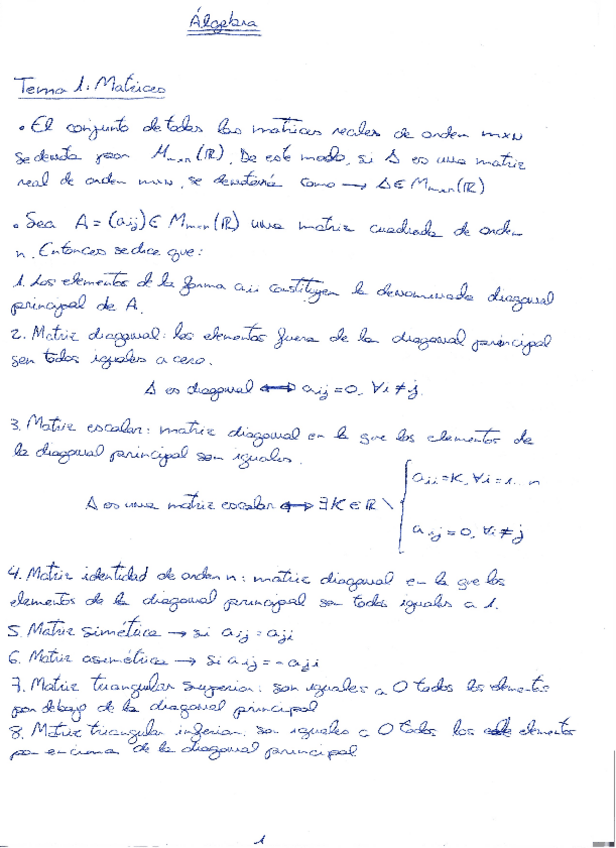 Álgebra
Tema 1: Matrices
• El conjunto de todas las matrices reales de orden mxn
se denota por Mmxn(ℝ). De este modo, si A es una matriz
real de orden mxn, se denotaría como → A∈Mmxn(ℝ)
• Sea A = (aij)∈ Mmxn(ℝ) una matriz cuadrada de orden
n. Entonces se dice que:
1. Los elementos de la forma aii constituyen la denominada diagonal
principal de A.
2. Matriz diagonal: los elementos fuera de la diagonal principal
son todos iguales a cero.
A es diagonal ↔ aij = 0, ∀i ≠ j
3. Matriz escalar: matriz diagonal en la que los elementos de
la diagonal principal son iguales.
aii = K, ∀i = 1... n
A es una matriz escalar ↔ ∃K∈ℝ \
aij = 0, ∀i ≠ j
4. Matriz identidad de orden n: matriz diagonal en la que los
elementos de la diagonal principal son todos iguales a 1.
5. Matriz simétrica → si aij = aji
6. Matriz asimétrica → si aij = - aji
7. Matriz triangular superior: son iguales a 0 todos los elementos
por debajo de la diagonal principal
8. Matriz triangular inferior: son iguales a 0 todos los elementos
por encima de la diagonal principal
1